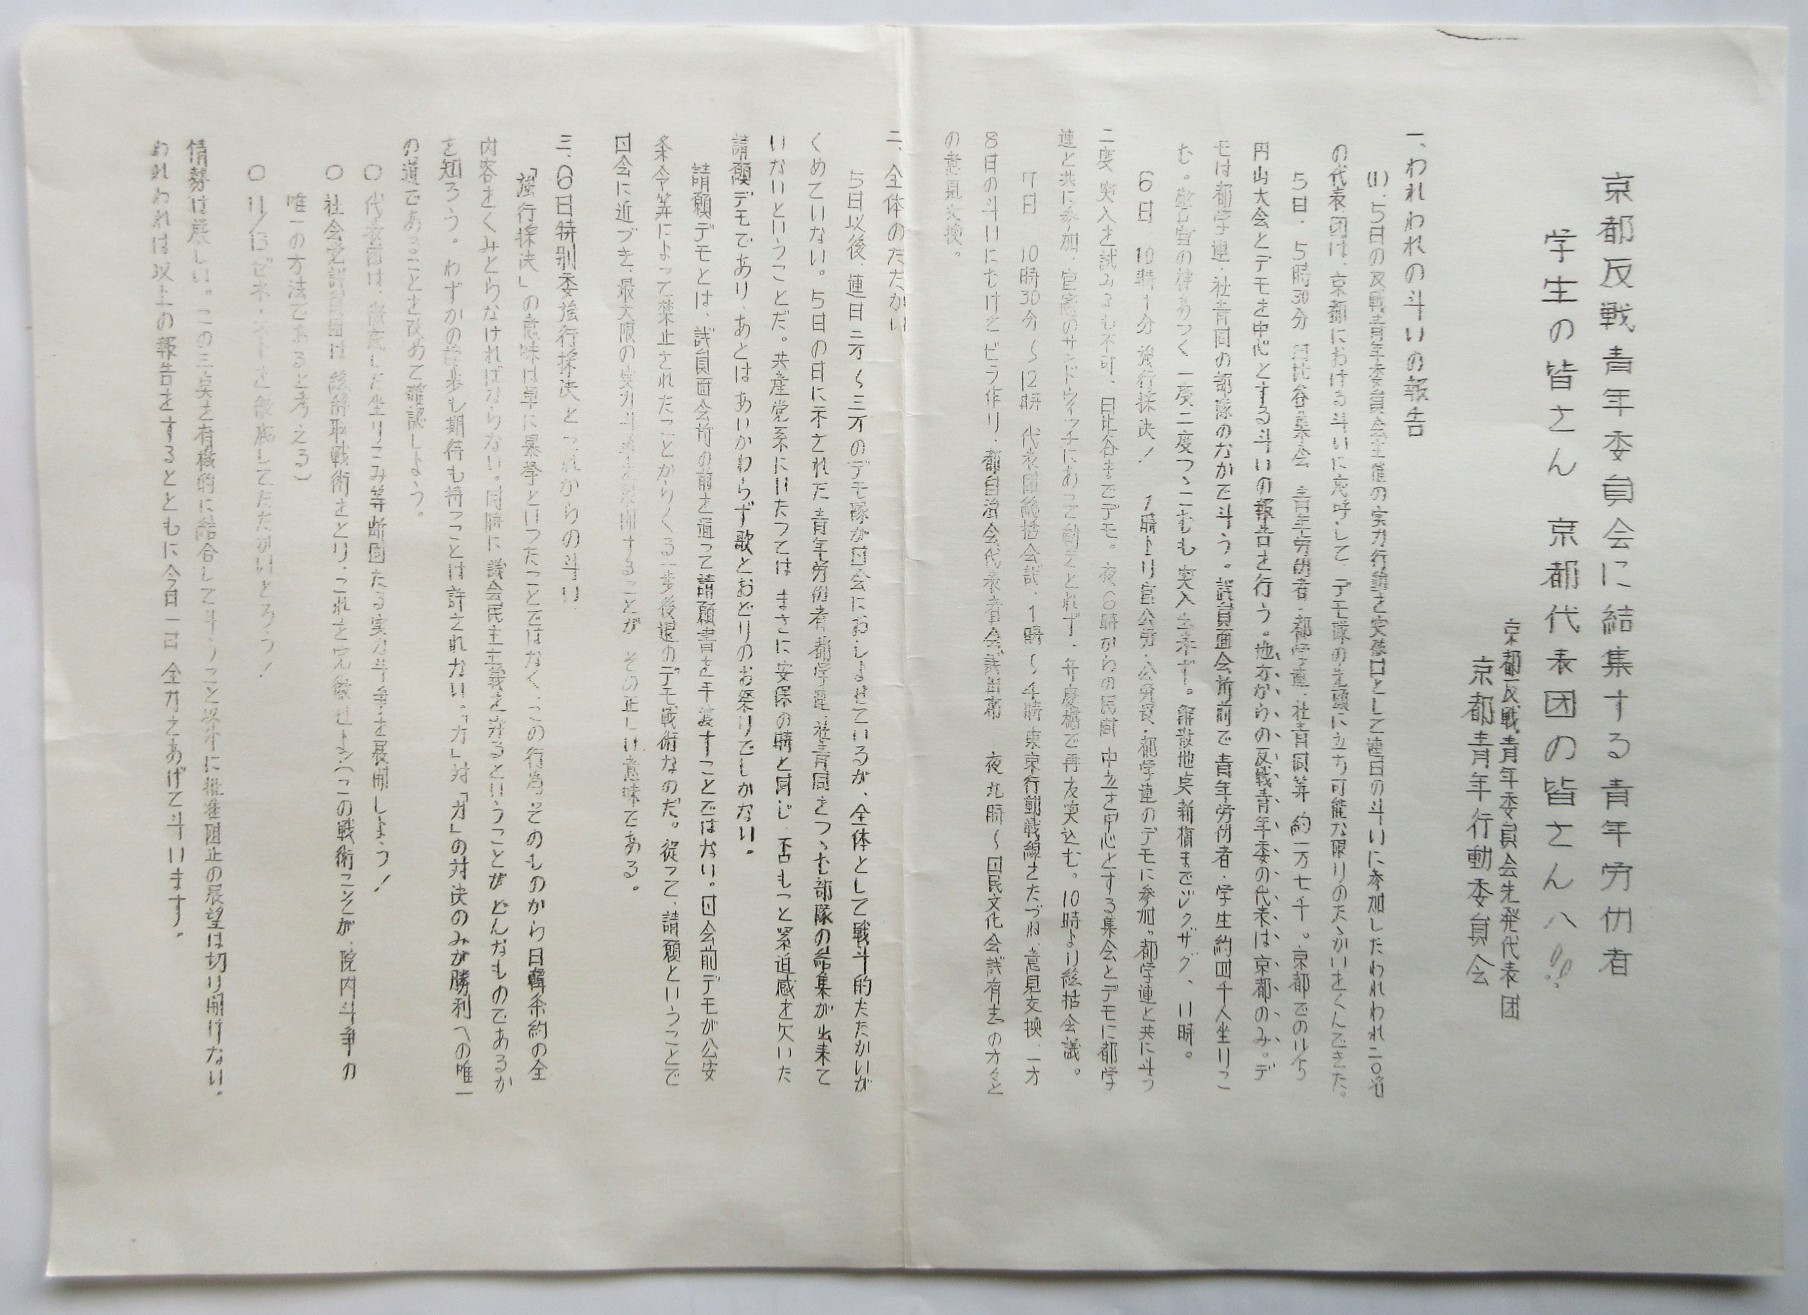 京都反戦青年委員会に結集する青年労仂者
学生の皆さん 京都代表団の皆さんへ!!
京都反戦青年委員会先発代表団
京都青年行動委員会
一、われわれの斗いの報告
(1)、5日の反戦青年委員会主催の実力行動を実像日として連日の斗いに参加したわれわれ二〇名
の代表団は、京都における斗いに応呼して、デモ隊の先頭に立ち可能な限りのたゝかいをくんできた。
5日、5時30分 日比谷集会 青年労仂者・都学連・社青同等 約一万七千。京都での4・5
円山大会とデモを中心とする斗いの報告を行う。地方からの反戦青年委の代表は京都のみ。デ
モは都学連・社青同の部隊のなかで斗う。議員面会所前で青年労仂者・学生約四千人坐りこ
む。警官の律あつく一度二度つっこむも突入出来ず。解散地点新橋までジグザグ、11時。
6日 10時十分 強行採決! 1時より官公労・公労協・都学連のデモに参加。都学連と共に斗う
二度突入を試みるも不可、日比谷までデモ。夜6時からの民間中立を中心とする集会とデモに都学
連と共に参加、官憲のサンドウィッチにあって動きとれず、数寄屋橋で再度突込む。10時より総括会議。
7日 10時30分〜12時 代表団総括会議、1時〜4時東京行動戦線をたづね、意見交換、一方
8日の斗いにむけたビラ作り、都自治会代表者会議出席 夜九時〜国民文化会議有志の方々と
の意見交換。
二、全体のたたかい
5日以後、連日二万〜三万のデモ隊が国会におしよせているが、全体として戦斗的たたかいが
くめていない。5日の日に示された青年労仂者都学連社青同をつゝむ部隊の結集が出来て
いないということだ。共産党系にいたっては まさに安保の時と同じ、否もっと緊迫感を欠いた
請願デモであり、あとはあいかわらず歌とおどりのお祭りでしかない。
請願デモとは、議員面会所の前を通って請願書を手渡すことではない。国会前デモが公安
条令等によって禁止されたことからくる一歩後退のデモ戦術なのだ。従って、請願ということで
国会に近づき、最大限の実力斗争を展開することが、その正しい意味である。
三、6日特別委強行採決とこれからの斗い
「強行採決」の意味は単に暴挙といったことではなく、この行為そのものから日韓条約の全
内容をくみとらなければならない。同時に議会民主主義を守るということがどんなものであるか
を知ろう。わずかの譲歩も期待も持つことは許されない。「力」対「力」の対決のみが勝利への唯一
の道であることを改めて確認しよう。
〇 代表団は、徹底した坐りこみ等断固たる実力斗争を展開しよう!
〇 社会党議員団は総辞職戦術をとり、これを完徹せよ(この戦術こそが、院内斗争の
唯一の方法であると考える)
〇 11/13ゼネ・ストを徹底してたたかいとろう!
情勢は厳しい。この三点を有機的に結合して斗うこと以外に批准阻止の展望は切り開けない。
われわれは以上の報告をするとともに今日一日 全力をあげて斗います。